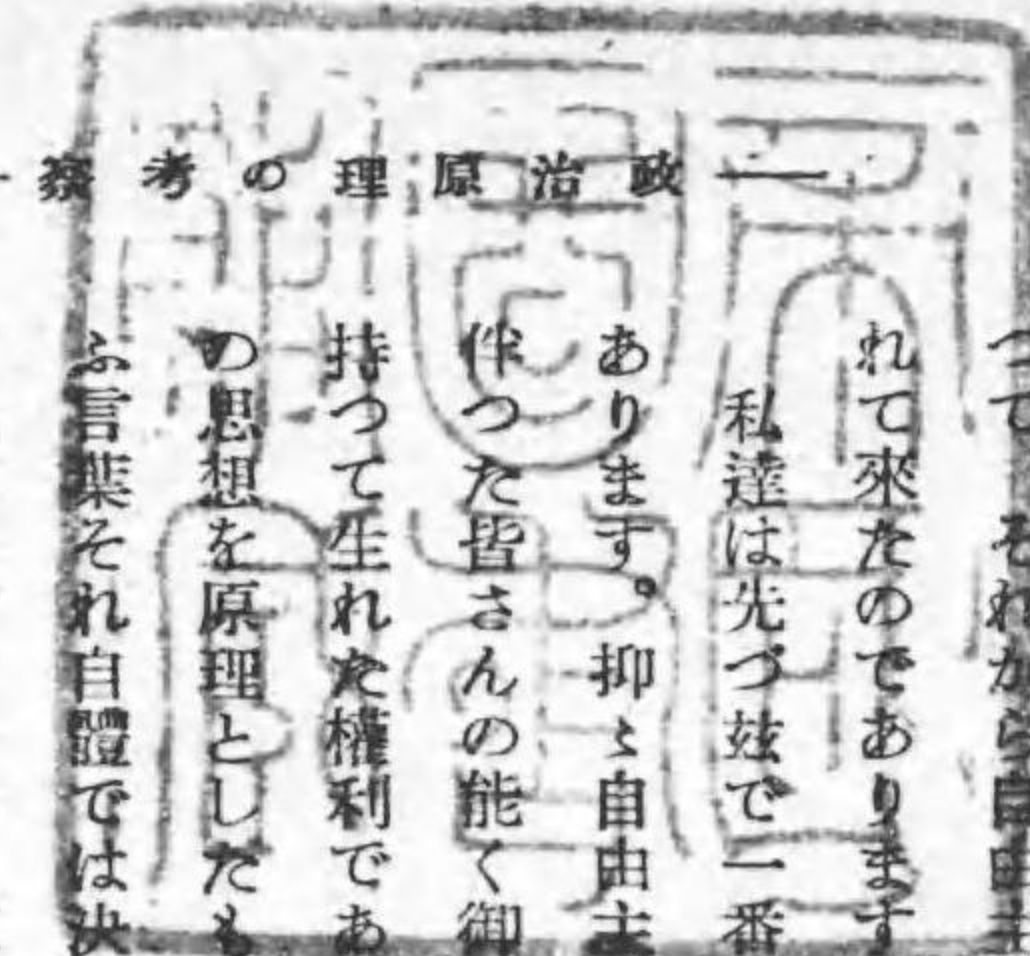 政治原理の考察
つて それから自由主
れて來たのであります
私達は先づ玆で一番
あります。抑〻自由主
伴つた皆さんの能く御
持つて生れた權利であ
の思想を原理としたも
ふ言葉それ自體では決